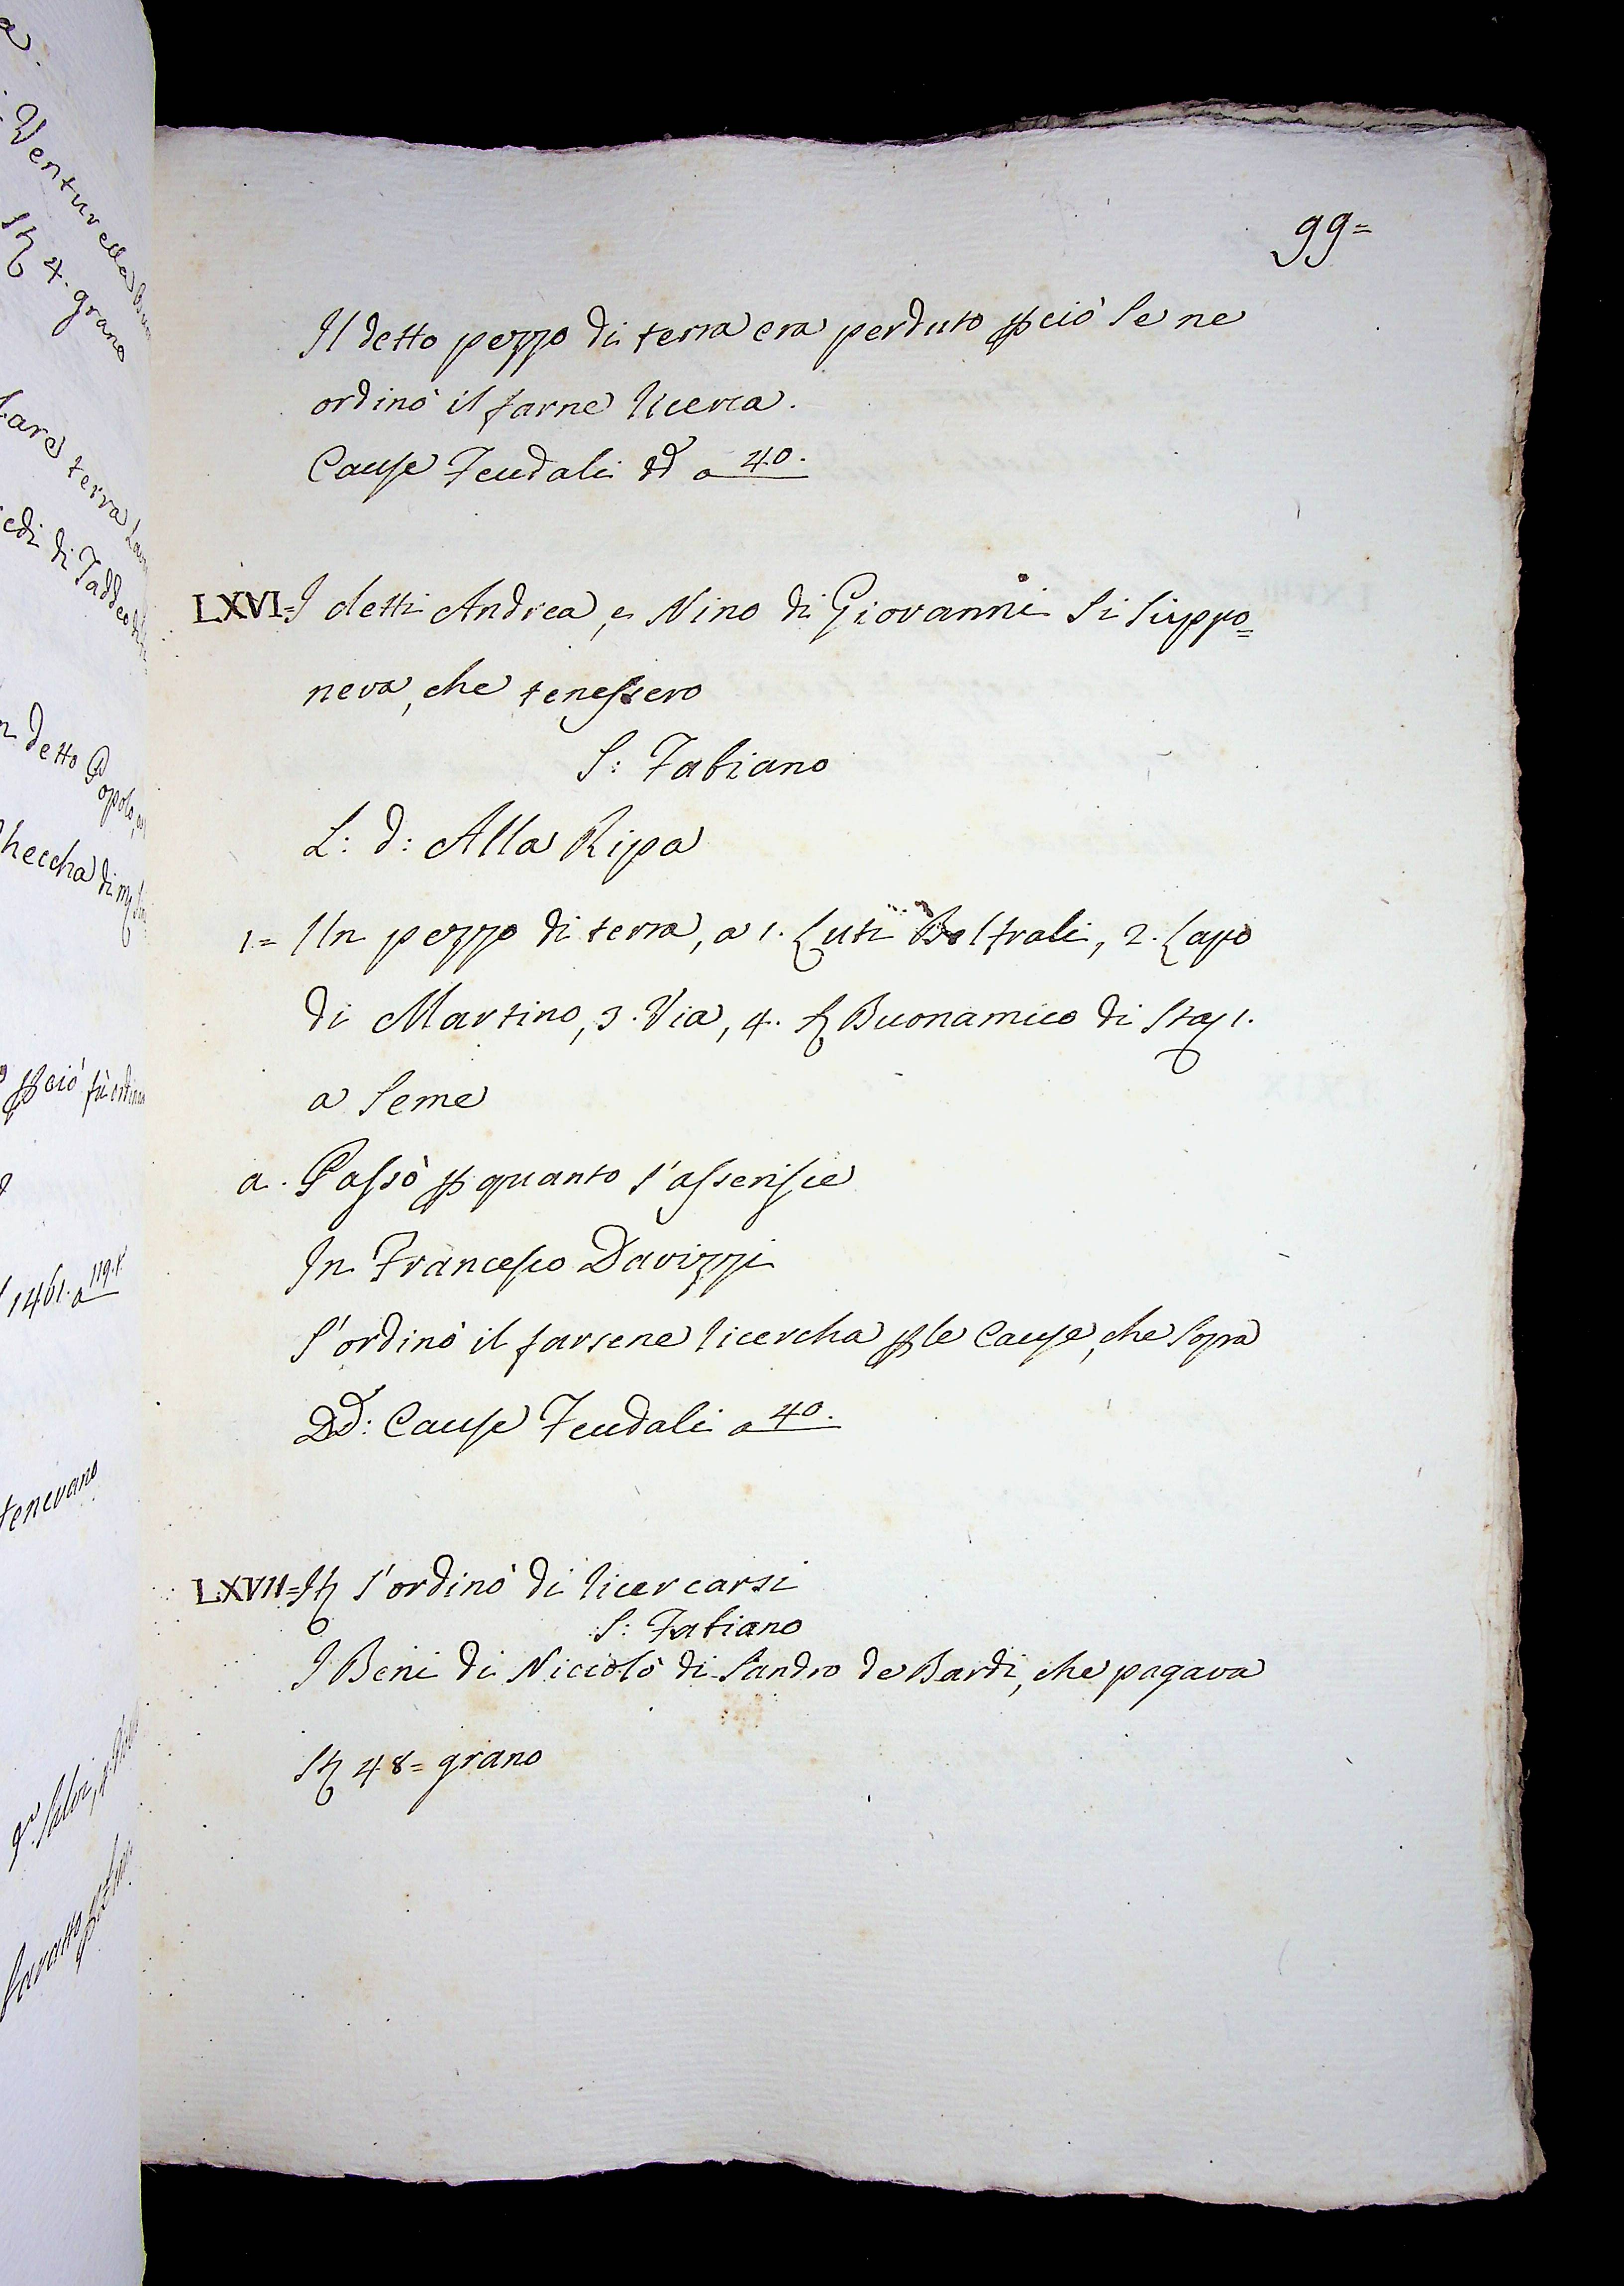 99=
Il detto pezzo di terra era perduto p ciò se ne
ordinò il farne ricerca.
Cause Feudali dd a 40.
LXVI= I detti Andrea, e Nino di Giovanni si suppo=
neva, che tenessero
S: Fabiano
L: d: Alla Ripa
1= Un pezzo di terra, a 1. Luti 2. Lapo
di Martino, 3. Via, 4. Buonamico di
a seme
a. Passò p quanto s'asserisce
In Francesco Davizzi
S'ordinò il farsene ricercha p le Cause, che sopra
DD: Cause Feudali a 40.
LXVII= It s'ordinò di ricercarsi
S: Fabiano
I Beni di Niccolò di Sandro de Bardi, che pagava
St 48= grano
Venturella
St 4. grano
terra
di Taddeo
detto Popolo,
p ciò fù
1461. a 119.
tenevano